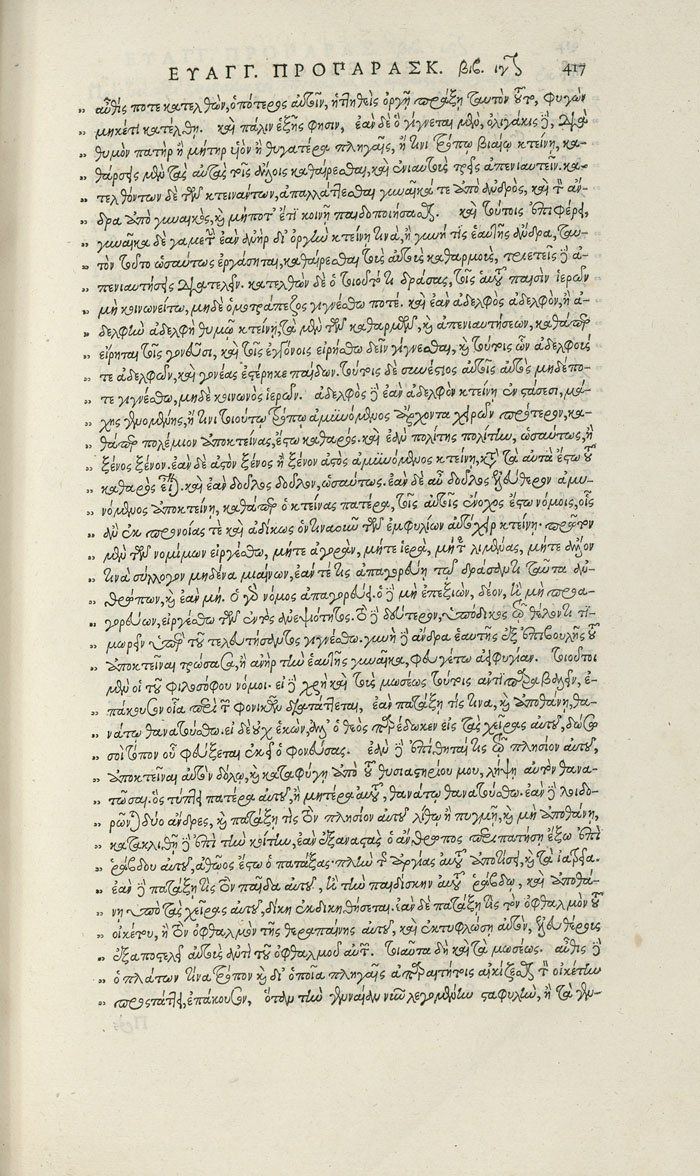 ΕΥΑΓΓ. ΠΡΟΠΑΡΑΣΚ. βιβ. ιγ 417
αὖθίς ποτε κατελθὼν, ὁπότερος αὐτοῖν, ἡττηθεὶς ὀργῇ πράξῃ ταυτὸν τοῦτο, φυγὼν
μηκέτι κατέλθῃ. καὶ πάλιν ἑξῆς φησιν, ἐὰν δὲ ὃ γίγνεται μὲν, ὀλιγάκις δὲ, διὰ
θυμὸν πατὴρ ἢ μήτηρ υἱὸν ἢ θυγατέρα πληγαῖς, ἤ τινι τρόπῳ βιαίῳ κτείνῃ, κα-
θάρσεις μὲν τὰς αὐτὰς τοῖς ἄλλοις καθαίρεσθαι, καὶ ἐνιαυτοὺς τρεῖς ἀπενιαυτεῖν. κα-
τελθόντων δὲ τῶν κτεινάντων, ἀπαλλάττεσθαι γυναῖκά τε ἀπὸ ἀνδρὸς, καὶ τὸν ἄν-
δρα ἀπὸ γυναικὸς, καὶ μήποτ' ἔτι κοινῇ παιδοποιήσασθαι. καὶ τούτοις ἐπιφέρει,
γυναῖκα δὲ γαμετὴν ἐὰν ἀνὴρ δι' ὀργὴν κτείνῃ τινὰ, ἢ γυνή τις ἑαυτῆς ἄνδρα, ταυ-
τὸν τοῦτο ὡσαύτως ἐργάσηται, καθαίρεσθαι τοὺς αὐτοὺς καθαρμοὺς, τριετεῖς δὲ ἀ-
πενιαυτήσεις διατελεῖν. κατελθὼν δὲ ὁ τοιοῦτό τι δράσας, τοῖς αὑτοῦ παισὶν ἱερῶν
μὴ κοινωνείτω, μηδὲ ὁμοτράπεζος γιγνέσθω ποτέ. καὶ ἐὰν ἀδελφὸς ἀδελφὸν, ἢ ἀ-
δελφὴν ἀδελφὴ θυμῷ κτείνῃ, τὰ μὲν τῶν καθαρμῶν, καὶ ἀπενιαυτήσεων, καθάπερ
εἴρηται τοῖς γονεῦσι, καὶ τοῖς ἐγγόνοις εἰρήσθω δεῖν γίγνεσθαι, καὶ τούτοις ὧν ἀδελφούς
τε ἀδελφῶν, καὶ γονέας ἐστέρηκε παίδων. τούτοις δὲ συνέστιος αὐτοῖς αὐτὸς μηδέπο-
τε γιγνέσθω, μηδὲ κοινωνὸς ἱερῶν. ἀδελφὸς δὲ ἐὰν ἀδελφὸν κτείνῃ ἐν στάσεσι, μά-
χης γενομένης, ἤ τινι τοιούτῳ τρόπῳ ἀμυνόμενος ἄρχοντα χειρῶν πρότερον, κα-
θάπερ πολέμιον ἀποκτείνας, ἔστω καθαρός. καὶ ἐὰν πολίτης πολίτην, ὡσαύτως, ἢ
ξένος ξένον. ἐὰν δὲ ἀστὸν ξένος ἢ ξένον ἀστὸς ἀμυνόμενος κτείνῃ, κατὰ τὰ αὐτὰ ἔστω τοῦ
καθαρὸς εἶναι. καὶ ἐὰν δοῦλος δοῦλον, ὡσαύτως. ἐὰν δὲ αὖ δοῦλος ἐλεύθερον ἀμυ-
νόμενος ἀποκτείνῃ, καθάπερ ὁ κτείνας πατέρα, τοῖς αὐτοῖς ἔνοχος ἔστω νόμοις, ὃς
ἂν ἐκ προνοίας τε καὶ ἀδίκως ὁντιναοῦν τῶν ἐμφυλίων αὐτόχειρ κτείνῃ. πρῶτον
μὲν τῶν νομίμων εἰργέσθω, μήτε ἀγορὰν, μήτε ἱερὰ, μήτε λιμένας, μήτε ἄλλον
τινὰ σύλλογον μηδένα μιαίνων, ἐάν τέ τις ἀπαγορεύῃ τῷ δράσαντι ταῦτα ἀν-
θρώπων, καὶ ἐὰν μή. ὁ γὰρ νόμος ἀπαγορεύει. ὁ δὲ μὴ ἐπεξιὼν, δέον, ἢ μὴ προα-
γορεύων, εἰργέσθω τῶν ἐντὸς ἀνεψιότητος. τὸ δὲ δεύτερον, ὑπόδικος τῷ θέλοντι τι-
μωρεῖν ὑπὲρ τοῦ τελευτήσαντος γιγνέσθω. γυνὴ δὲ ἄνδρα ἑαυτῆς ἐξ ἐπιβουλῆς τοῦ
ἀποκτεῖναι τρώσασα, ἢ ἀνὴρ τὴν ἑαυτῆς γυναῖκα, φευγέτω ἀειφυγίαν. τοιοῦτοι
μὲν οἱ τοῦ φιλοσόφου νόμοι. εἰ δὲ χρὴ καὶ τοὺς μωσέως τούτοις ἀντιπαραβαλεῖν, ἐ-
πάκουσον οἷα περὶ τῶν φονικῶν διατάττεται, ἐὰν πατάξῃ τίς τινα, καὶ ἀποθάνῃ, θα-
νάτῳ θανατούσθω. εἰ δὲ οὐχ ἑκὼν, ἀλλ' ὁ θεὸς παρέδωκεν εἰς τὰς χεῖρας αὐτοῦ, δώσω
σοι τόπον οὗ φεύξεται ἐκεῖ ὁ φονεύσας. ἐὰν δὲ ἐπιθῆταί τις τῷ πλησίον αὐτοῦ,
ἀποκτεῖναι αὐτὸν δόλῳ, καὶ καταφύγῃ ἀπὸ τοῦ θυσιαστηρίου μου, λήψῃ αὐτὸν θανα-
τῶσαι. ὃς τύπτει πατέρα αὐτοῦ, ἢ μητέρα αὐτοῦ, θανάτῳ θανατούσθω. ἐὰν δὲ λοιδο-
ρῶνται δύο ἄνδρες, καὶ πατάξῃ τις τὸν πλησίον αὐτοῦ λίθῳ ἢ πυγμῇ, καὶ μὴ ἀποθάνῃ,
κατακλιθῇ δὲ ἐπὶ τὴν κοίτην, ἐὰν ἐξαναστὰς ὁ ἄνθρωπος περιπατήσῃ ἔξω ἐπὶ
ῥάβδου αὐτοῦ, ἀθῶος ἔστω ὁ πατάξας. πλὴν τῆς ἀργίας αὐτοῦ ἀποτίσει, καὶ τὰ ἰατρεῖα.
ἐὰν δὲ πατάξῃ τις τὸν παῖδα αὐτοῦ, ἢ τὴν παιδίσκην αὐτοῦ ῥάβδῳ, καὶ ἀποθά-
νῃ ὑπὸ τὰς χεῖρας αὐτοῦ, δίκῃ ἐκδικηθήσεται. ἐὰν δὲ πατάξῃ τις τὸν ὀφθαλμὸν τοῦ
οἰκέτου, ἢ τὸν ὀφθαλμὸν τῆς θεραπαίνης αὐτοῦ, καὶ ἐκτυφλώσῃ αὐτὸν, ἐλευθέρους
ἐξαποστελεῖ αὐτοὺς ἀντὶ τοῦ ὀφθαλμοῦ αὐτῶν. τοιαῦτα δὴ καὶ τὰ μωσέως. αὖθις δὲ
ὁ πλάτων τίνα τρόπον καὶ δι' ὁποίας πληγαῖς ἀπαραιτήτοις αἰκίζεσθαι τὸν οἰκέτην
προστάττει, ἐπάκουσον, ὅταν τὴν γενναίαν νῦν λεγομένην σταφυλὴν, ἢ τὰ γεν-